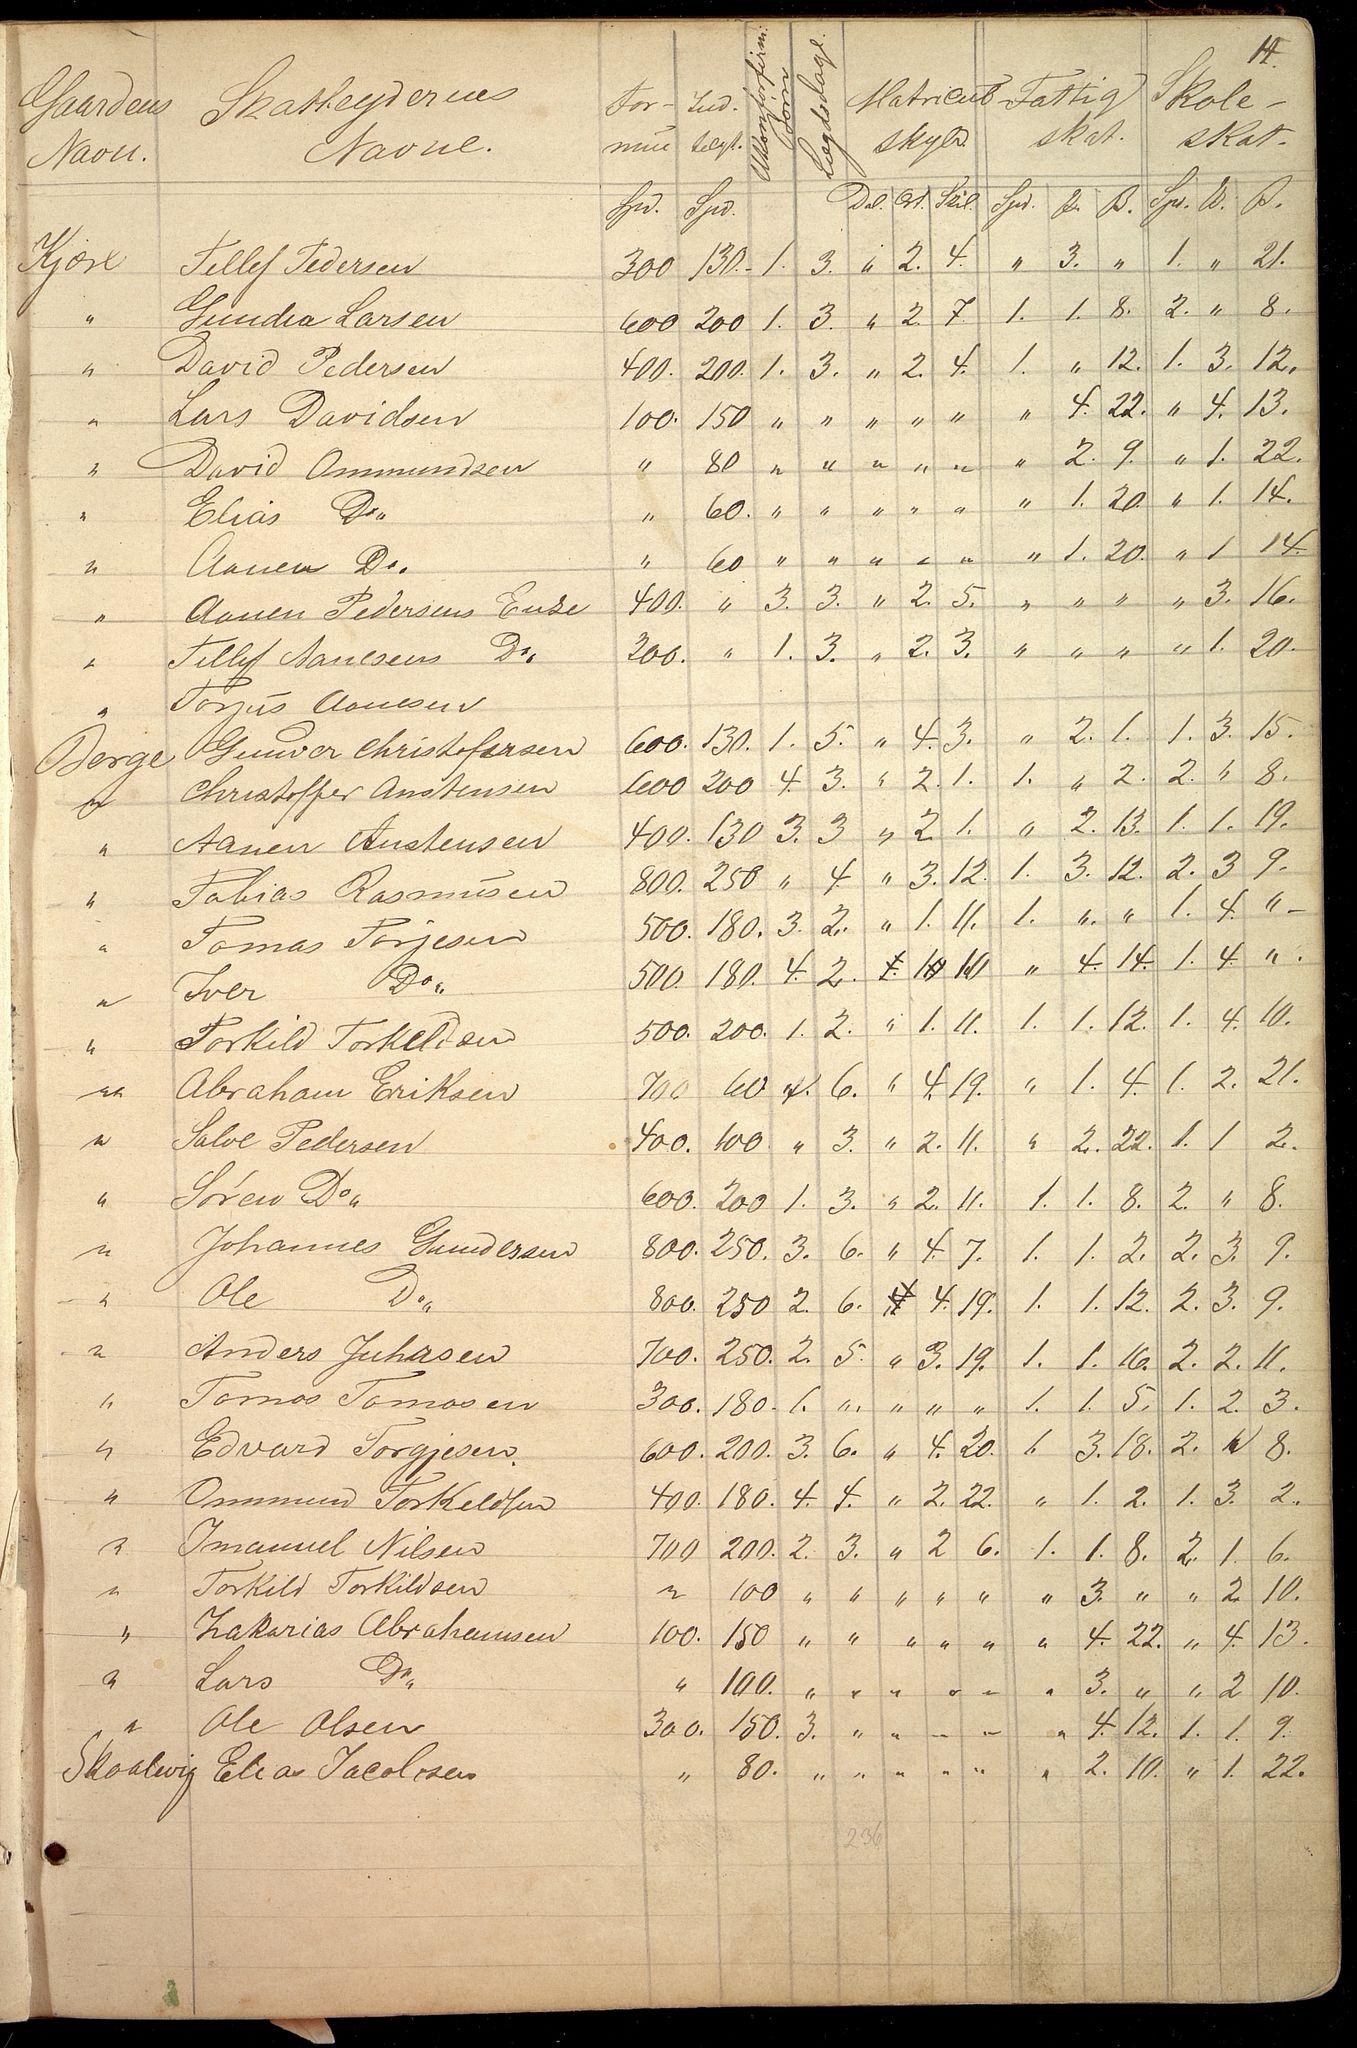 11.
Gaardens Navn. Skatteydernes Navne. For- mue Ind- tægt. Ukonfirm. Børn Lægdslagt. Matricul skyld. Fattig skat. Skole- skat.
Spd. Spd. Dal. Ort. Skil. Spd. O. S. Spd. O. S.
Kjøre Tellef Pedersen 300 130. 1. 3. " 2. 4. " 3. " 1. " 21.
" Gundia Larsen 600 200 1. 3. " 2. 7. 1. 1. 8. 2. " 8.
" David Pedersen 400. 200. 1. 3. " 2. 4. 1. " 12. 1. 3. 12.
" Lars Davidsen 100. 150 " " " " " " 4. 22. " 4. 13.
" David Ommundsen " 80 " " " " " " 2. 9. " 1. 22.
" Elias Do " 60. " " " " " " 1. 20. " 1. 14.
" Aanen Do. " 60 " " " " " " 1. 20. " 1 14.
" Aanen Pedersens Enke 400. " 3. 3. " 2. 5. " " " " 3. 16.
" Tellef Aanesens Do 200. " 1. 3. " 2. 3. " " " " 1. 20.
" Torjus Aanesen
Berge Gunver Christofersen 600. 130. 1. 5. " 4. 3. " 2. 1. 1. 3. 15.
" Christoffer Anstensen 600 200 4. 3. " 2. 1. 1. " 2. 2. " 8.
" Aanen Anstensen 400. 130 3. 3 " 2 1. " 2. 13. 1. 1. 19.
" Tobias Rasmusen 800. 250 " 4 " 3. 12. 1. 3. 12. 2. 3 9.
" Tomas Torjesen 500. 180. 3. 2. " 1. 11. 1. " " 1. 4. "
" Iver Do 500. 180. 4. 2. " 4. 14. 1. 4. "
" Torkild Torkeldsen 500. 200. 1. 2. " 1. 11. 1. 1. 12. 1. 4. 10.
" Abraham Eriksen 700 60 4. 6. " 4. 19. " 1. 4. 1. 2. 21.
" Salve Pedersen 400. 100. " 3. " 2. 11. " 2. 22. 1. 1 2.
" Søren Do 600. 200 1. 3. " 2. 11. 1. 1. 8. 2. " 8.
" Johannes Gundersen 800. 250. 3. 6. " 4. 7. 1. 1. 2. 2. 3. 9.
" Ole Do 800. 250 2. 6. " 4. 19. 1. 1. 12. 2. 3. 9.
" Anders Juhasen 700. 250. 2. 5. " 3. 19. 1. 1. 16. 2. 2. 11.
" Tomas Tomasen 300. 180. 1. " " " " 1. 1. 5. 1. 2. 3.
" Edvard Torgjesen. 600. 200. 3. 6. " 4. 20. 1. 3. 18. 2. " 8.
" Ommund Torkeldsen 400. 180. 4. 4. " 2. 22. " 1. 2. 1. 3. 2.
" Imanuel Nilsen 700 200. 2. 3. " 2 6. 1. 1. 8. 2. 1. 6.
" Torkild Torkildsen " 100 " " " " " " 3. " " 2. 10.
" Zakarias Abrahamsen 100. 150 " " " " " " 4. 22. " 4. 13.
" Lars Do " 100. " " " " " " 3. " " 2 10.
" Ole Olsen 300. 150. 3. " " " " " 4. 12. 1. 1. 9.
Skoalevig Elias Jacobsen " 80. " " " " " " 2. 10. " 1. 22.
236